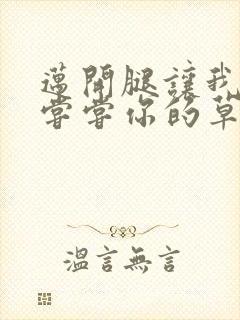 邁開腿讓我
嘗嘗你的草
溫言無言